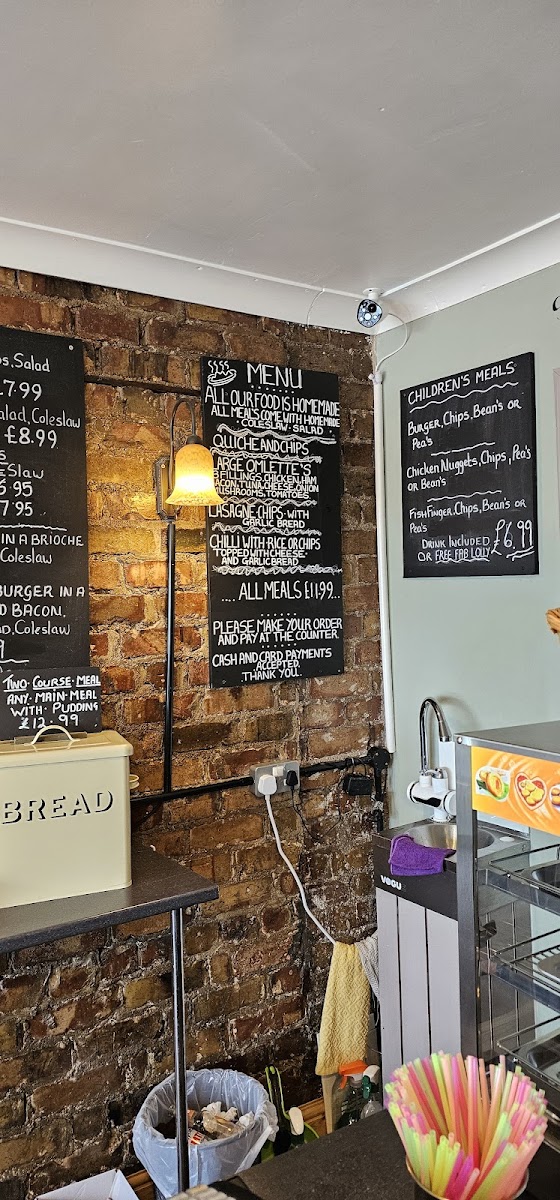 s, Salad
7.99
alad, Coleslaw
£8.99
S
ESlaw
6.95
7.95
IN A BRIOCHE
Coleslaw
BURGER IN A
D BACON,
Coleslaw
TWO COURSE MEAL
ANY MAIN MEAL
WITH PUDDING
£12.99
BREAD
MENU
ALL OUR FOOD IS HOMEMADE
ALL MEALS COME WITH HOMEMADE
COLESLAW. SALAD
QUICHE AND CHIPS
ARGE OMLETTE'S
3 FILLINGS, CHICKEN, HAM
BACON, TUNA, CHEESE, ONION
MUSHROOMS, TOMATOES
LASAGNE CHIPS WITH
GARLIC BREAD
CHILLI WITH RICE OR CHIPS
TOPPED WITH CHEESE
AND GARLIC BREAD
.... ALL MEALS £11.99...
PLEASE MAKE YOUR ORDER
AND PAY AT THE COUNTER
CASH AND CARD PAYMENTS
ACCEPTED.
THANK YOU.
CHILDREN'S MEALS
BURGER, Chips, BEAN'S OR
PEA'S
CHICKEN NUGGETS, CHIPS, PEA'S
OR BEAN'S
FISH FINGER, CHIPS, BEAN'S OR
PEA'S
DRINK INCLUDED
OR FREE FAB LOLLY £6.99
VOGU